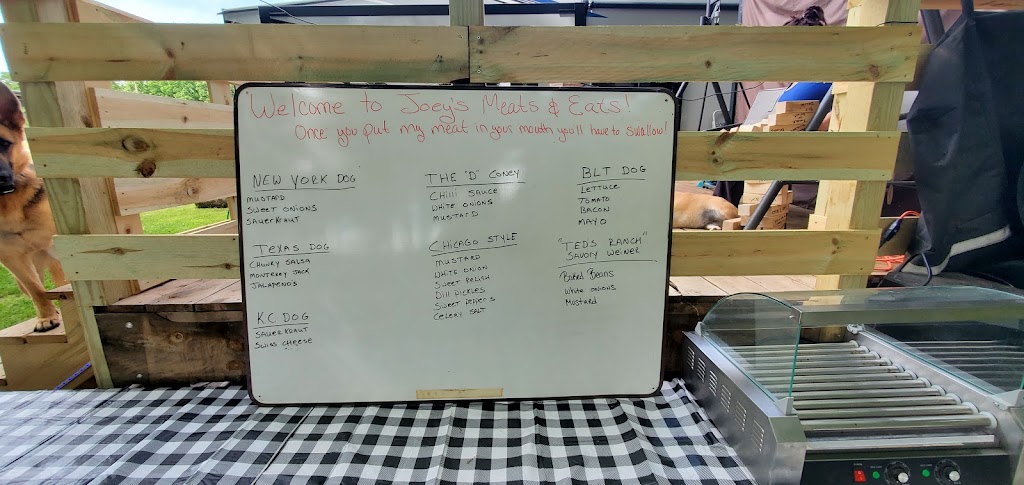 Welcome to Joey's Meats & Eats!
Once you put my meat in your mouth you'll have to swallow!
NEW YORK DOG
MUSTARD
SWEET ONIONS
SAUERKRAUT
TEXAS DOG
CHUNKY SALSA
MONTEREY JACK
JALAPENOS
KC DOG
SAUERKRAUT
SWISS CHEESE
THE "D" CONEY
CHILI SAUCE
WHITE ONIONS
MUSTARD
CHICAGO STYLE
MUSTARD
WHITE ONION
SWEET RELISH
DILL PICKLES
SWEET PEPPERS
CELERY SALT
BLT DOG
LETTUCE
TOMATO
BACON
MAYO
"TEDS RANCH"
SAVORY WEINER
Baked Beans
WHITE ONIONS
Mustard